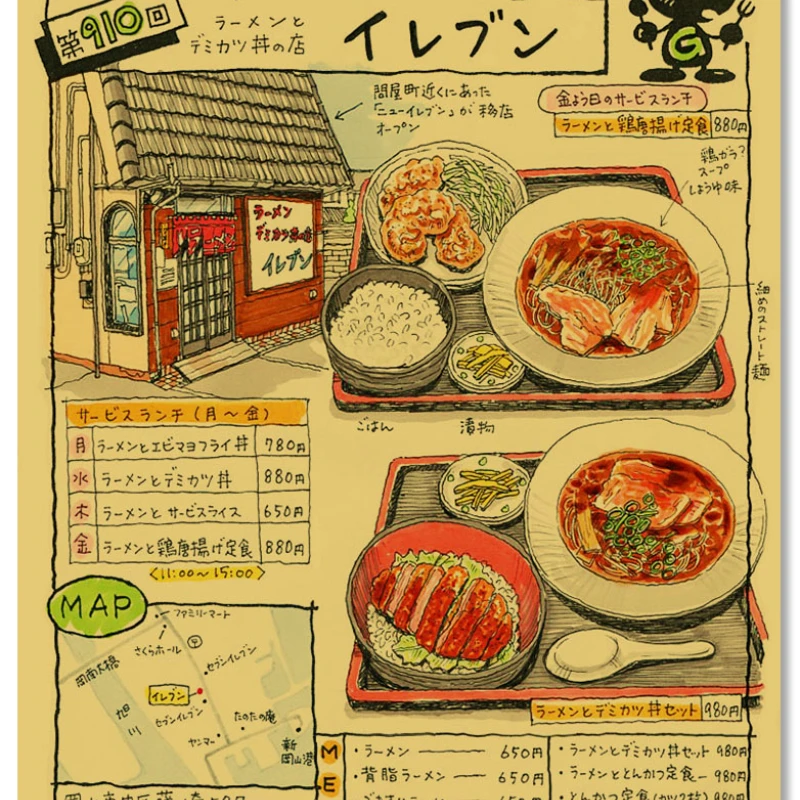 第910回
ラーメンと
デミカツ丼の店
イレブン
G
問屋町近くにあった
「ニューイレブン」が移店
オープン
金よう日のサービスランチ
ラーメンと鶏唐揚げ定食 880円
鶏ガラ?
スープ
しょうゆ味
細めのストレート麺
ラーメン
ラーメン
デミカツ丼の店
イレブン
ごはん
漬物
サービスランチ(月〜金)
月 ラーメンとエビマヨフライ丼 780円
水 ラーメンとデミカツ丼 880円
木 ラーメンとサービスライス 650円
金 ラーメンと鶏唐揚げ定食 880円
<11:00〜15:00>
MAP
ファミリーマート
さくらホール
岡南大橋
セブンイレブン
イレブン
旭川
セブンイレブン
たのたの庵
ヤンマー
新岡山港
ラーメンとデミカツ丼セット 980円
M
E
・ラーメン 650円
・背脂ラーメン 650円
・ラーメンとデミカツ丼セット 980円
・ラーメンととんかつ定食 980円